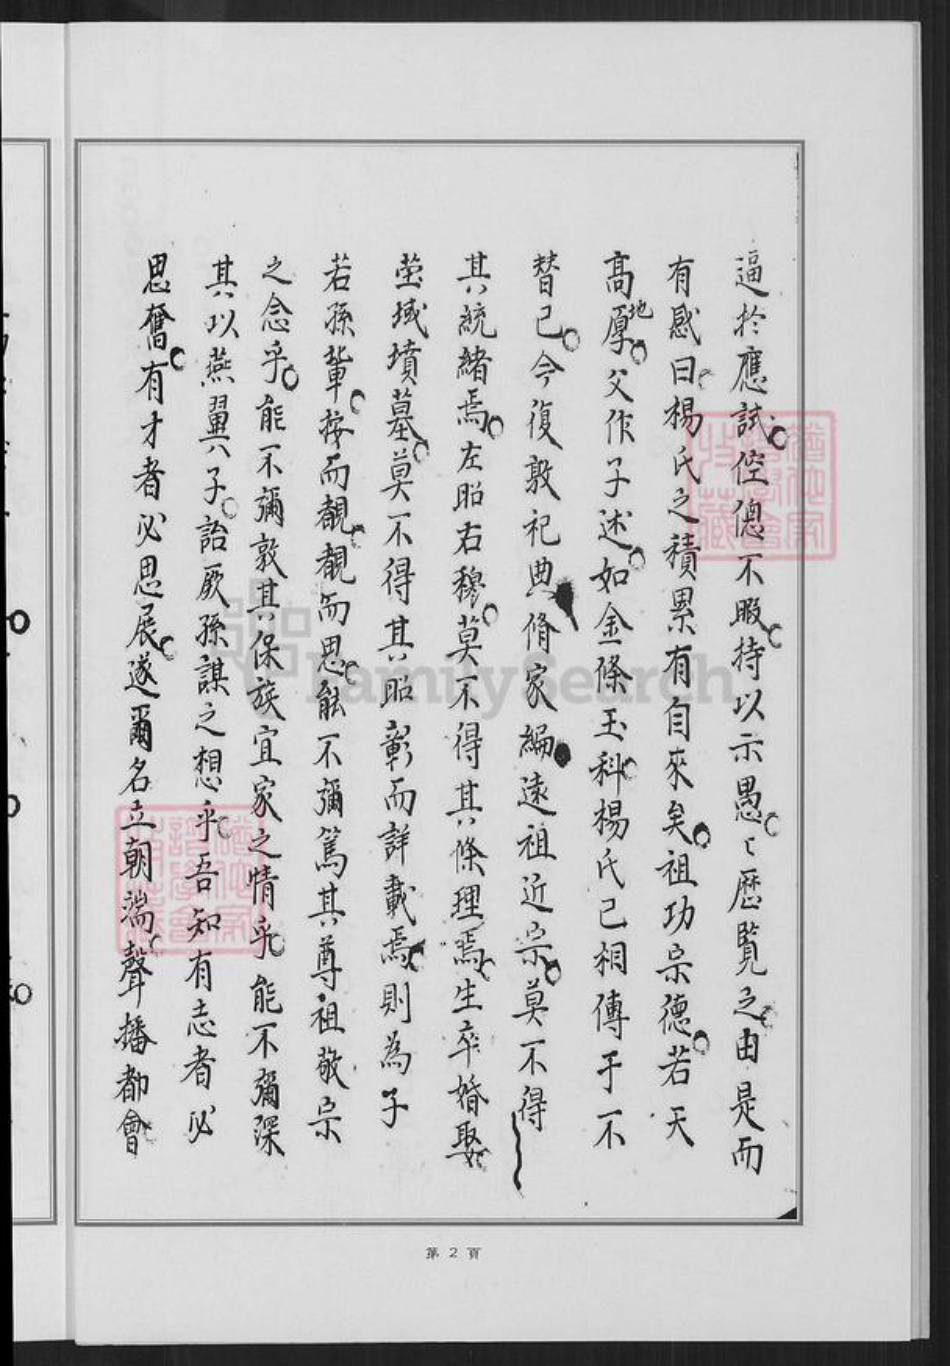 逼於應試倥傯不暇持以示愚〻歷覧之由是而
有感曰楊氏之積累有自來矣祖功宗德若天
高地厚父作子述如金條玉科楊氏已相傳于不
替已今復敦祀典脩家編遠祖近宗莫不得
其統緒焉左昭右穆莫不得其條理焉生卒婚娶
塋域墳墓莫不得其昭彰而詳載焉則為子
若孫輩按而覩覩而思能不彌篤其尊祖敬宗
之念乎能不彌敦其保族宜家之情乎能不彌深
其以燕翼子詒厥孫謀之想乎吾知有志者必
思奮有才者必思展遂爾名立朝端聲播都會
FamilySearch
第 2 頁